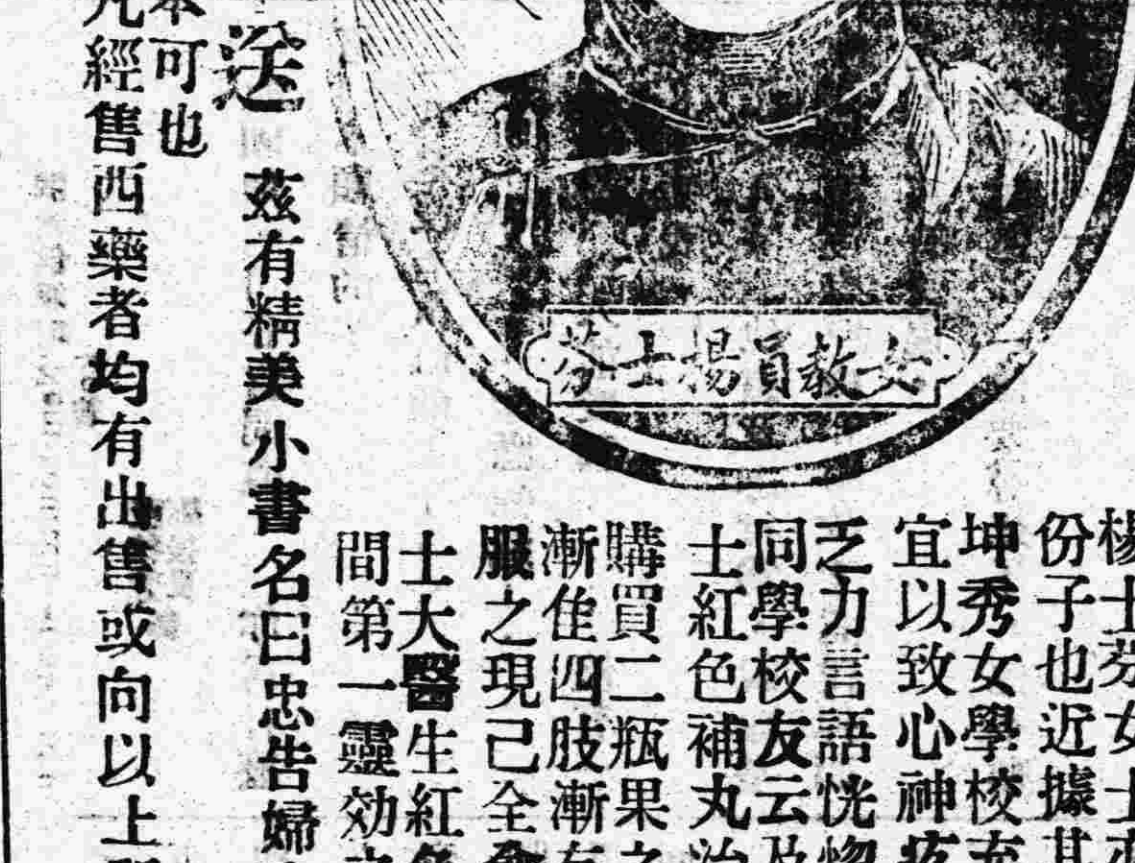 楊士芬女士
份子也近據其
坤秀女學校
宜以致心神
乏力言語恍惚
同學校友云及
士紅色補丸治
購買二瓶果
漸佳四肢漸有
服之現己全
士大醫生紅色
間第一靈効
女教員楊士芬
送
茲有精美小書名曰忠告婦
本可也
凡經售西藥者均有出售或向以上